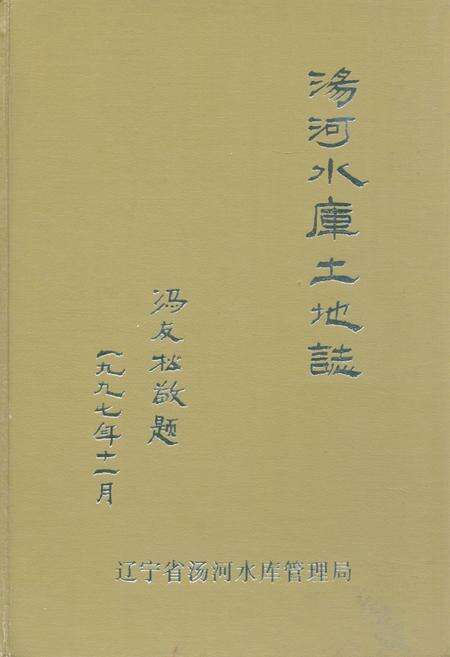 湯河水庫土地誌
冯友松敬题
一九九七年十一月
辽宁省汤河水库管理局